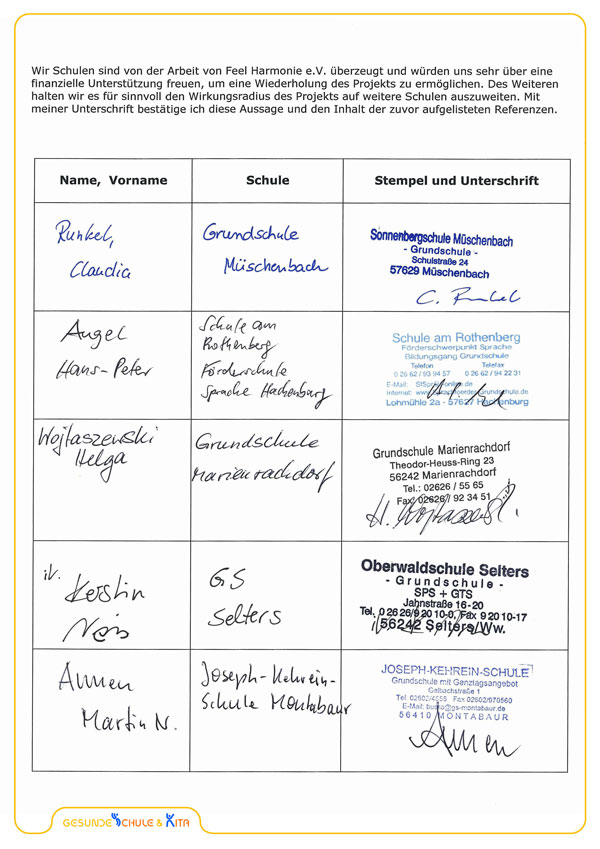 Wir Schulen sind von der Arbeit von Feel Harmonie e.V. überzeugt und würden uns sehr über eine
finanzielle Unterstützung freuen, um eine Wiederholung des Projekts zu ermöglichen. Des Weiteren
halten wir es für sinnvoll den Wirkungsradius des Projekts auf weitere Schulen auszuweiten. Mit
meiner Unterschrift bestätige ich diese Aussage und den Inhalt der zuvor aufgelisteten Referenzen.
Name, Vorname
Schule
Stempel und Unterschrift
Runkel,
Claudia
Grundschule
Müschenbach
Sonnenbergschule Müschenbach
- Grundschule -
Schulstraße 24
57629 Müschenbach
C. Runkel
Angel
Hans-Peter
Schule am
Rothenberg
Förderschule
Sprache Hachenburg
Schule am Rothenberg
Förderschwerpunkt Sprache
Bildungsgang Grundschule
Telefon Telefax
0 26 62 / 93 94 57 0 26 62 / 94 22 31
E-Mail:
Internet:
Lohmühle 2a - 57627 Hachenburg
Wojtaszewski
Helga
Grundschule
Marienrachdorf
Grundschule Marienrachdorf
Theodor-Heuss-Ring 23
56242 Marienrachdorf
Tel.: 02626 / 55 65
Fax: 02626 / 92 34 51
H. Wojtaszewski
i.V. Kerstin
GS
Selters
Oberwaldschule Selters
- Grundschule -
SPS + GTS
Jahnstraße 16-20
Tel. 0 26 26/9 20 10-0, Fax 9 20 10-17
56242 Selters/Ww.
Annen
Martin N.
Joseph-Kehrein-
Schule Montabaur
JOSEPH-KEHREIN-SCHULE
Grundschule mit Ganztagsangebot
Gelbachstraße 1
Fax 02602/970560
E-Mail:
56410 MONTABAUR
Annen
GESUNDE SCHULE & KITA